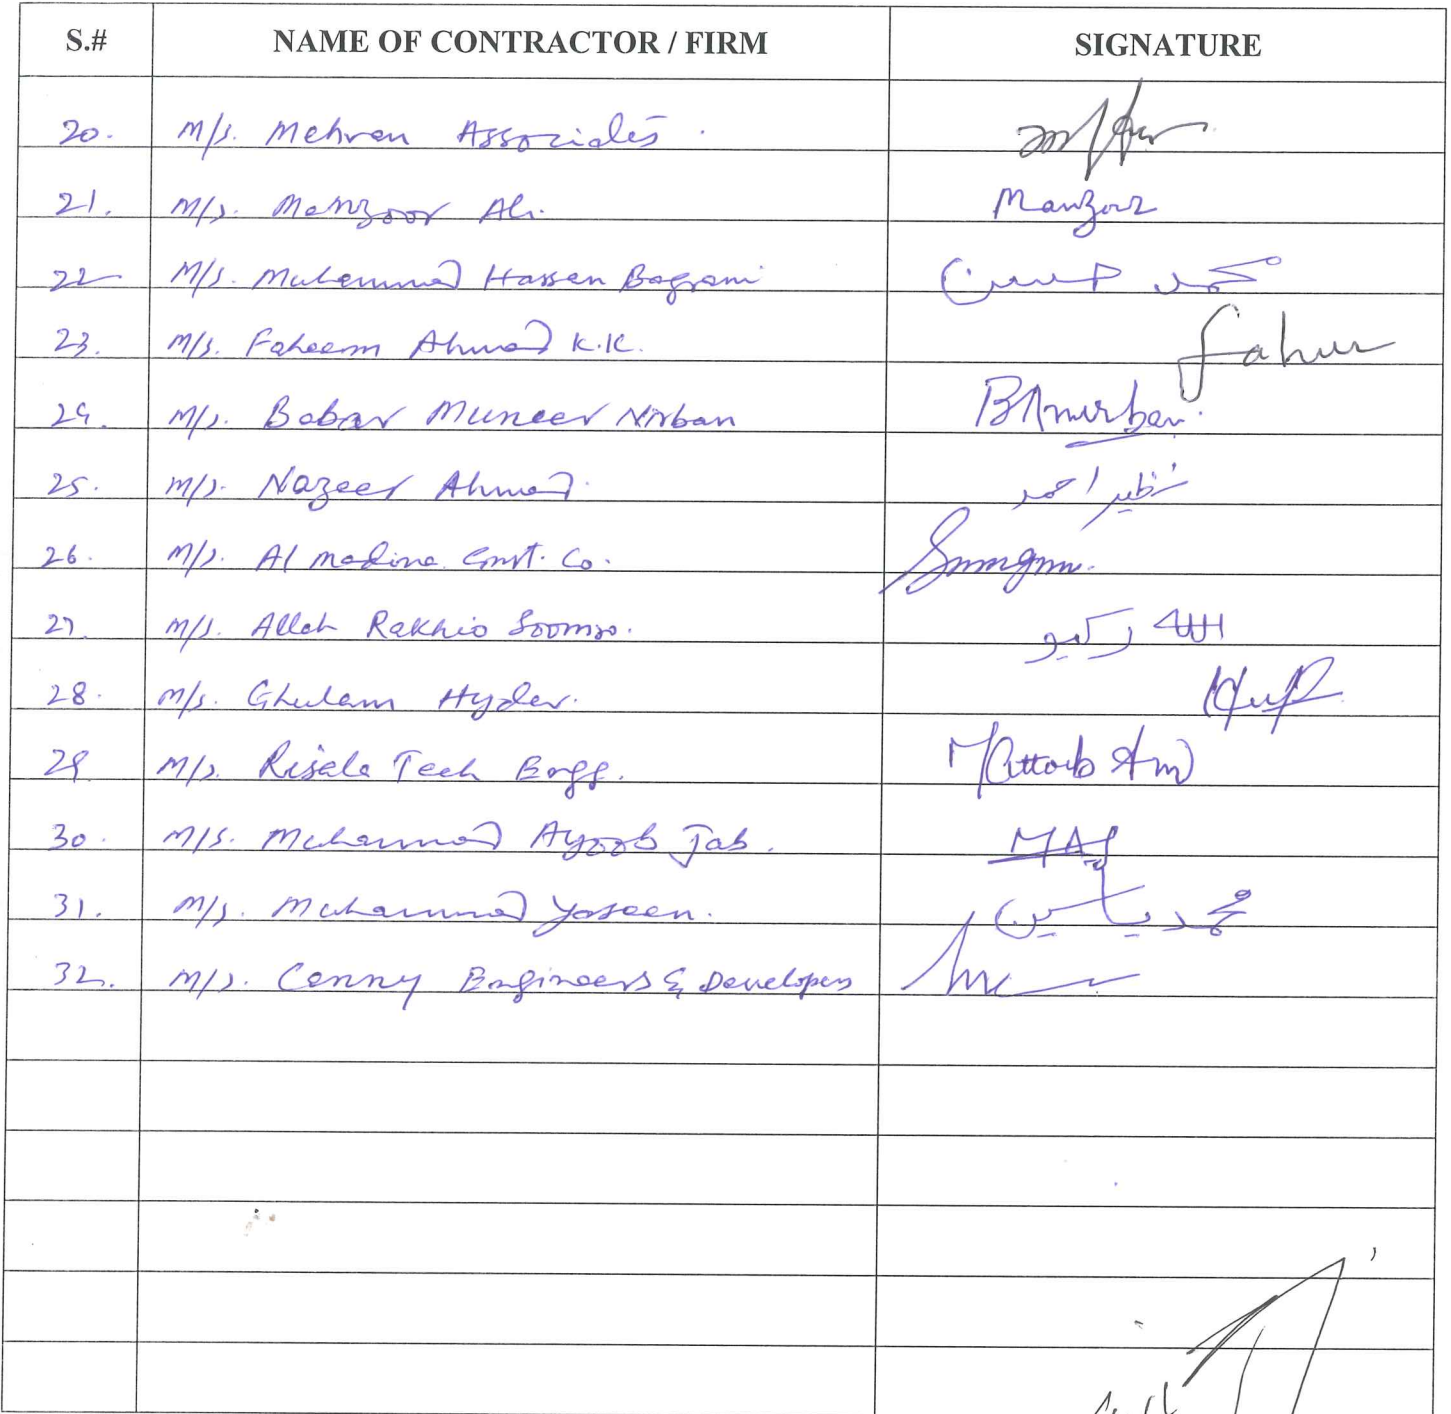 S.# NAME OF CONTRACTOR / FIRM SIGNATURE
20. M/s. Mehran Associates.
21. M/s. Manzoor Ali. Manzoor
22 M/s. Muhammad Hassan Bagrani محمد حسن
23. M/s. Faheem Ahmad K.K.
24. M/s. Babar Muneer Nirban
25. M/s. Nazeer Ahmad. نظير احمد
26. M/s. Al Madina Const. Co.
27. M/s. Allah Rakhio Soomro. الله رکيو
28. M/s. Ghulam Hyder.
29 M/s. Risala Tech Engg.
30. M/s. Muhammad Ayoob Jab. MAJ
31. M/s. Muhammad Yaseen. محمد ياسين
32. M/s. Conny Engineers & Developers